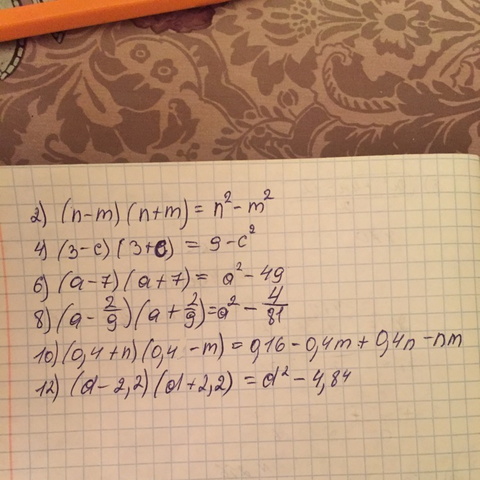 2) (n-m)(n+m) = n² - m²
4) (3-c)(3+c) = 9 - c²
6) (a-7)(a+7) = a² - 49
8) (a - 2/9)(a + 2/9) = a² - 4/81
10) (0,4+n)(0,4-m) = 0,16 - 0,4m + 0,4n - nm
12) (d-2,2)(d+2,2) = d² - 4,84